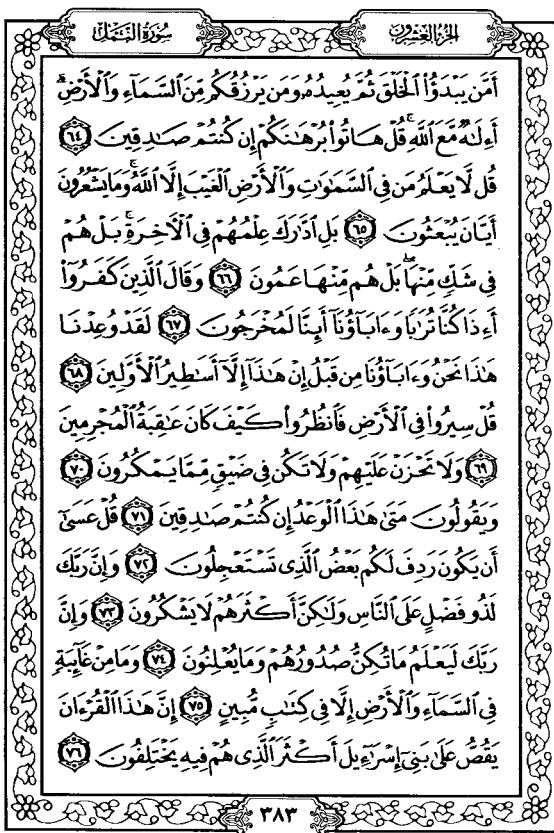 الجزء العشرون
سورة النمل
أَمَّن يَبْدَؤُا۟ ٱلْخَلْقَ ثُمَّ يُعِيدُهُۥ وَمَن يَرْزُقُكُم مِّنَ ٱلسَّمَآءِ وَٱلْأَرْضِ ۗ
أَءِلَٰهٌ مَّعَ ٱللَّهِ ۚ قُلْ هَاتُوا۟ بُرْهَٰنَكُمْ إِن كُنتُمْ صَٰدِقِينَ ٦٤
قُل لَّا يَعْلَمُ مَن فِى ٱلسَّمَٰوَٰتِ وَٱلْأَرْضِ ٱلْغَيْبَ إِلَّا ٱللَّهُ ۚ وَمَا يَشْعُرُونَ
أَيَّانَ يُبْعَثُونَ ٦٥ بَلِ ٱدَّٰرَكَ عِلْمُهُمْ فِى ٱلْءَاخِرَةِ ۚ بَلْ هُمْ
فِى شَكٍّ مِّنْهَا ۖ بَلْ هُم مِّنْهَا عَمُونَ ٦٦ وَقَالَ ٱلَّذِينَ كَفَرُوٓا۟
أَءِذَا كُنَّا تُرَٰبًا وَءَابَآؤُنَآ أَئِنَّا لَمُخْرَجُونَ ٦٧ لَقَدْ وُعِدْنَا
هَٰذَا نَحْنُ وَءَابَآؤُنَا مِن قَبْلُ إِنْ هَٰذَآ إِلَّآ أَسَٰطِيرُ ٱلْأَوَّلِينَ ٦٨
قُلْ سِيرُوا۟ فِى ٱلْأَرْضِ فَٱنظُرُوا۟ كَيْفَ كَانَ عَٰقِبَةُ ٱلْمُجْرِمِينَ
٦٩ وَلَا تَحْزَنْ عَلَيْهِمْ وَلَا تَكُن فِى ضَيْقٍ مِّمَّا يَمْكُرُونَ ٧٠
وَيَقُولُونَ مَتَىٰ هَٰذَا ٱلْوَعْدُ إِن كُنتُمْ صَٰدِقِينَ ٧١ قُلْ عَسَىٰٓ
أَن يَكُونَ رَدِفَ لَكُم بَعْضُ ٱلَّذِى تَسْتَعْجِلُونَ ٧٢ وَإِنَّ رَبَّكَ
لَذُو فَضْلٍ عَلَى ٱلنَّاسِ وَلَٰكِنَّ أَكْثَرَهُمْ لَا يَشْكُرُونَ ٧٣ وَإِنَّ
رَبَّكَ لَيَعْلَمُ مَا تُكِنُّ صُدُورُهُمْ وَمَا يُعْلِنُونَ ٧٤ وَمَا مِنْ غَآئِبَةٍ
فِى ٱلسَّمَآءِ وَٱلْأَرْضِ إِلَّا فِى كِتَٰبٍ مُّبِينٍ ٧٥ إِنَّ هَٰذَا ٱلْقُرْءَانَ
يَقُصُّ عَلَىٰ بَنِىٓ إِسْرَٰٓءِيلَ أَكْثَرَ ٱلَّذِى هُمْ فِيهِ يَخْتَلِفُونَ ٧٦
٣٨٣